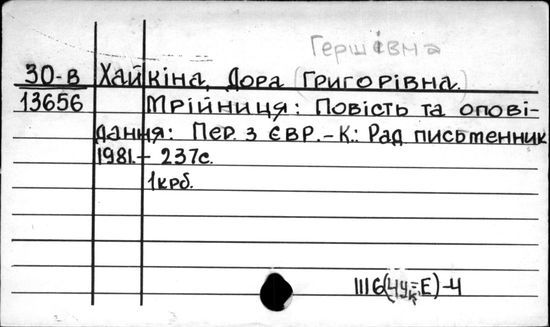 Гершівна
30-в Хайкіна, Дора (Григорівна.)
13656 Мрійниця: Повість та опові-
дання: Пер. з євр. - К.: Рад письменник
1981. - 237с.
1крб.